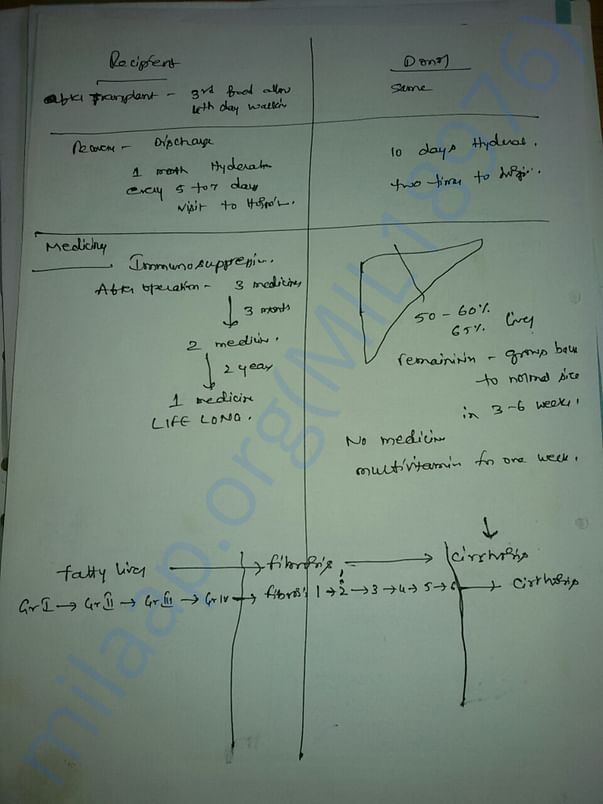 Recipient
After Transplant - 3rd food allow
4th day walkin
Recovery - Discharge
1 month Hyderaba
every 5 to 7 days
visit to Hospi
Medicine
Immunosuppressin.
After operation - 3 medicines
3 months
2 medicin.
2 year
1 medicin
LIFE LONG.
Donor
Same
10 days Hyderaba.
two times to
50 - 60%
65% liver
remainin - grows back
to normal size
in 3-6 weeks.
No medicin
multivitamin for one week.
fatty liver → fibrosis → Cirrhosis
Gr I → Gr II → Gr III → Gr IV → fibrosis 1 → 2 → 3 → 4 → 5 → 6 → Cirrhosis
milaap.org(MIL18976)